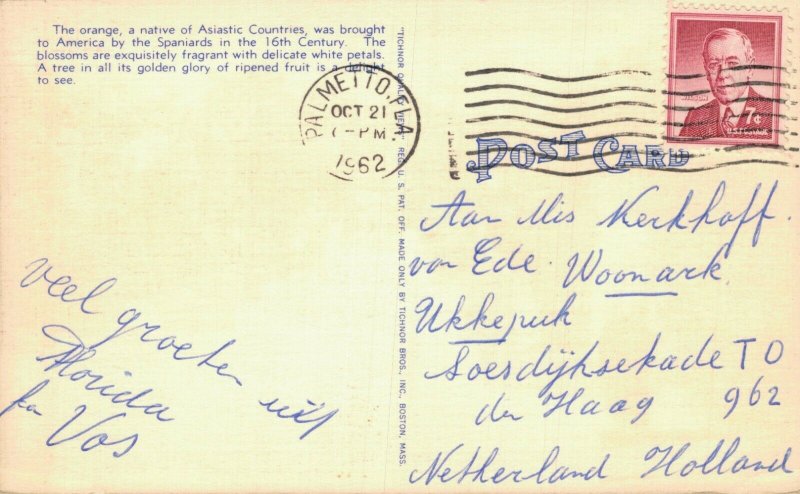 The orange, a native of Asiastic Countries, was brought
to America by the Spaniards in the 16th Century. The
blossoms are exquisitely fragrant with delicate white petals.
A tree in all its golden glory of ripened fruit is a delight
to see.
"TICHNOR QUALITY VIEWS" REG. U. S. PAT. OFF. MADE ONLY BY TICHNOR BROS., INC., BOSTON, MASS.
PALMETTO, FLA.
OCT 21
PM
1962
7¢
POST CARD
Aan Mis Kerkhoff.
van Ede. Woonark
Ukkepuk
Soesdijksekade T O
den Haag 962
Netherland Holland
veel groeten uit
Florida
fam Vos